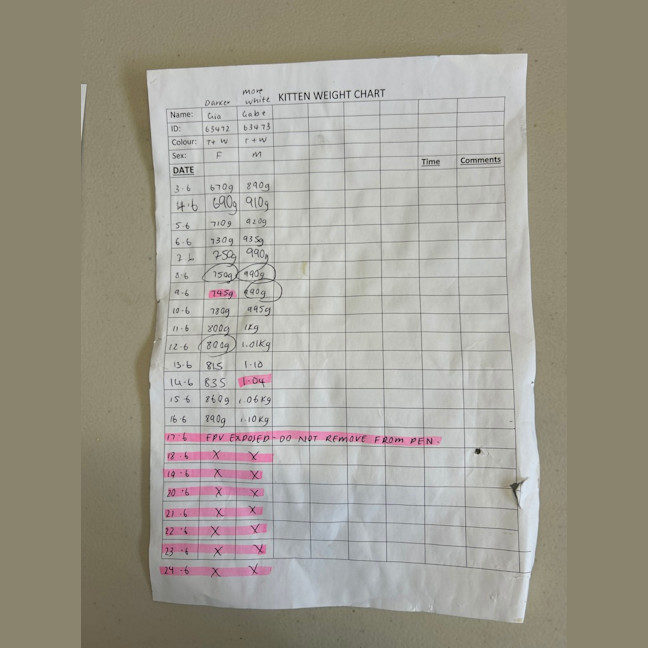 Darker more white KITTEN WEIGHT CHART
Name: Gia Gabe
ID: 63472 63473
Colour: T+W T+W
Sex: F M
DATE Time Comments
3-6 670g 890g
4-6 690g 910g
5-6 710g 920g
6-6 730g 935g
7-6 750g 990g
8-6 750g 990g
9-6 745g 990g
10-6 780g 995g
11-6 800g 1kg
12-6 800g 1.01Kg
13-6 815 1-10
14-6 835 1-04
15-6 860g 1.06Kg
16-6 890g 1.10Kg
17-6 FPV EXPOSED - DO NOT REMOVE FROM PEN.
18-6 X X
19-6 X X
20-6 X X
21-6 X X
22-6 X X
23-6 X X
24-6 X X